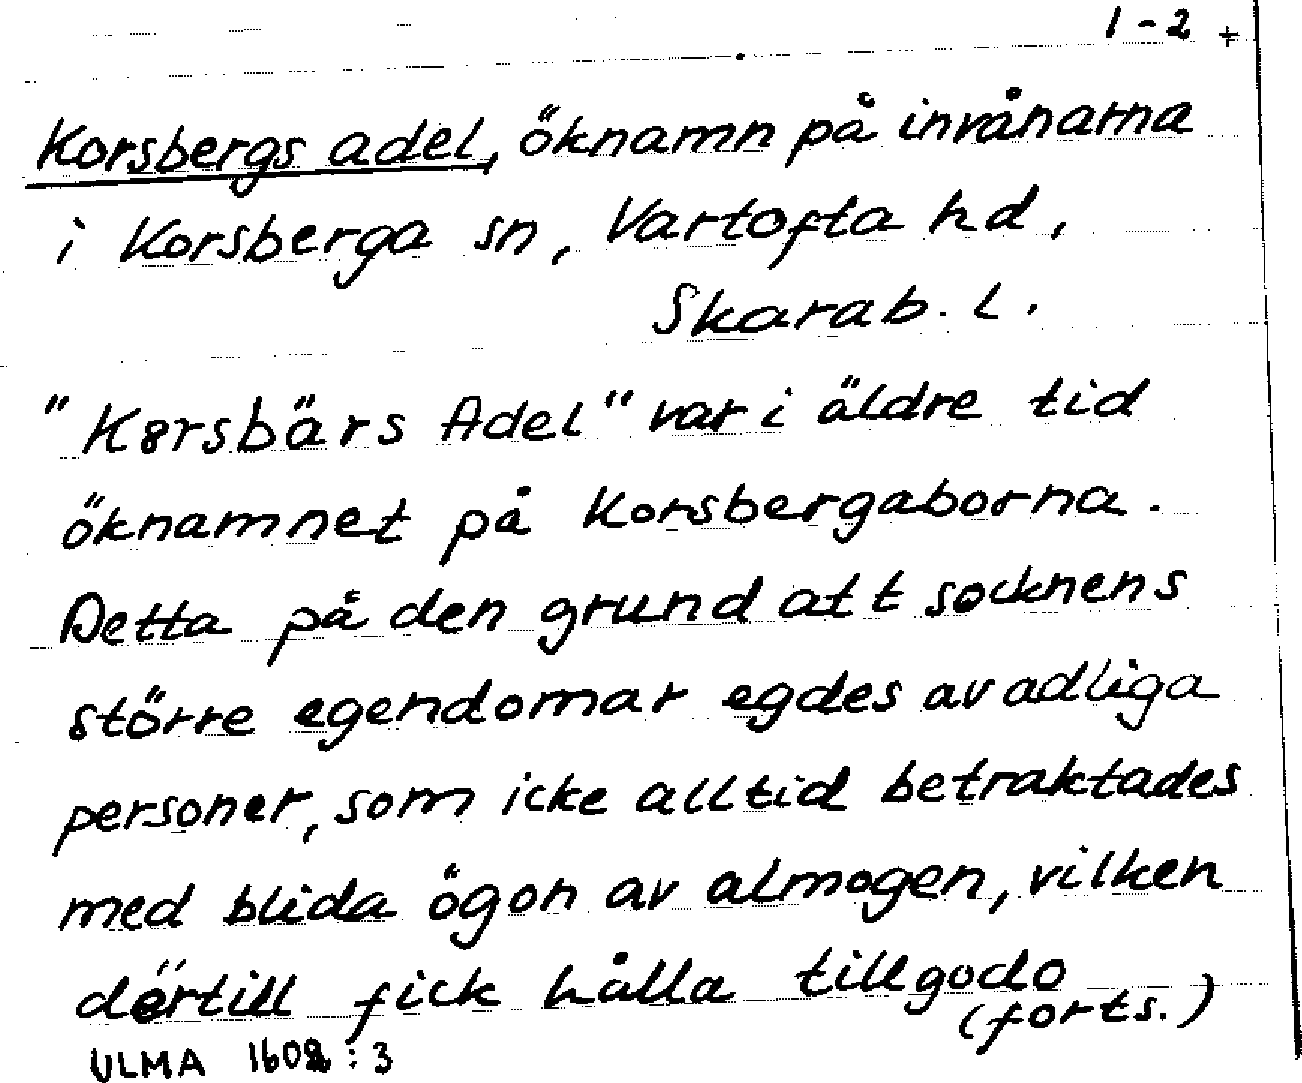 1-2 +
Korsbergs adel, öknamn på invånarna
i Korsberga sn, Vartofta hd,
Skarab. l.
"Korsbärs Adel" var i äldre tid
öknamnet på Korsbergaborna.
Detta på den grund att socknens
större egendomar egdes av adliga
personer, som icke alltid betraktades
med blida ögon av almogen, vilken
därtill fick hålla tillgodo
(forts.)
ULMA 1602:3